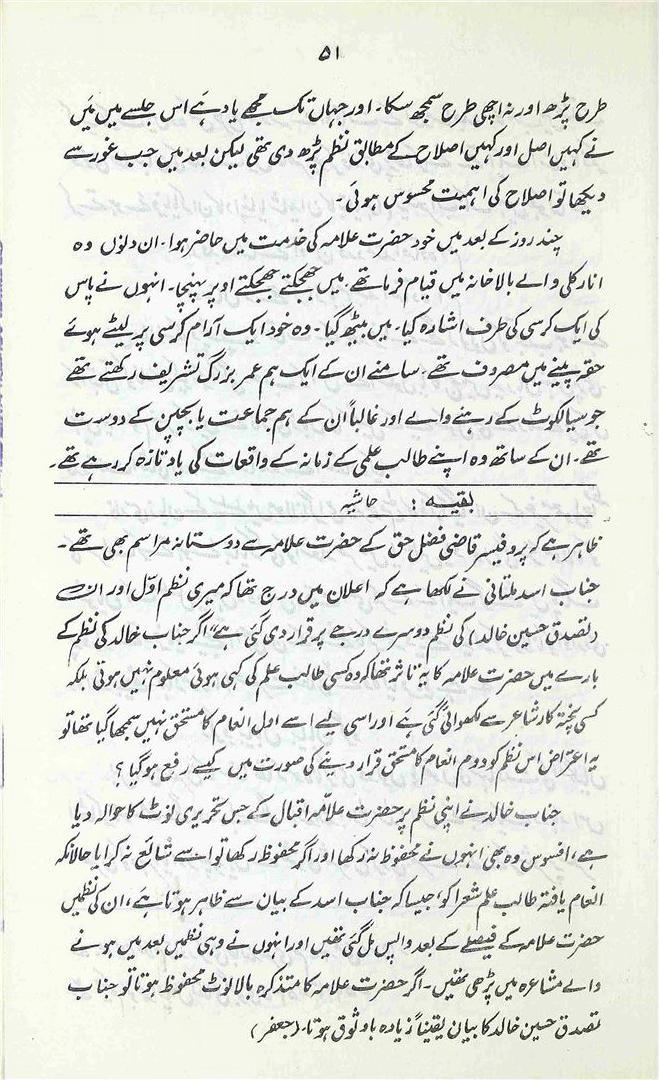 ۵۱
طرح پڑھ اور نہ اچھی طرح سمجھ سکا۔ اور جہاں تک مجھے یاد ہے اس جلسے میں میَں
نے کہیں اصل اور کہیں اصلاح کے مطابق نظم پڑھ دی تھی لیکن بعد میں جب غور سے
دیکھا تو اصلاح کی اہمیت محسوس ہوئی۔
چند روز کے بعد میں خود حضرت علامہ کی خدمت میں حاضر ہوا۔ ان دلوں وہ
انارکلی والے بالاخانہ میں قیام فرما تھے۔ میں جھجکتے جھجکتے اوپر پہنچا۔ انہوں نے پاس
کی ایک کرسی کی طرف اشارہ کیا۔ میں بیٹھ گیا۔ وہ خود ایک آرام کرسی پر لیٹے ہوئے
حقہ پینے میں مصروف تھے۔ سامنے ان کے ایک ہم عمر بزرگ تشریف رکھتے تھے
جو سیالکوٹ کے رہنے والے اور غالباً ان کے ہم جماعت یا بچپن کے دوست
تھے۔ ان کے ساتھ وہ اپنے طالب علمی کے زمانہ کے واقعات کی یاد تازہ کر رہے تھے۔
بقیہ : حاشیہ
ظاہر ہے کہ پروفیسر قاضی فضل حق کے حضرت علامہ سے دوستانہ مراسم بھی تھے۔
جناب اسد ملتانی نے لکھا ہے کہ اعلان میں درج تھا کہ میری نظم اوّل اور ان
(تصدق حسین خالد) کی نظم دوسرے درجے پر قرار دی گئی ہے" اگر جناب خالد کی نظم کے
بارے میں حضرت علامہ کا یہ تاثر تھا کہ وہ کسی طالب علم کی کہی ہوئی معلوم نہیں ہوتی بلکہ
کسی پختہ کار شاعر سے لکھوائی گئی ہے اور اسی لیے اسے اول انعام کا مستحق نہیں سمجھا گیا تھا تو
یہ اعتراض اس نظم کو دوم انعام کا مستحق قرار دینے کی صورت میں کیسے رفع ہو گیا؟
جناب خالد نے اپنی نظم پر حضرت علاّمہ اقبال کے جس تحریری نوٹ کا حوالہ دیا
ہے، افسوس وہ بھی انہوں نے محفوظ نہ رکھا اور اگر محفوظ رکھا تو اسے شائع نہ کرایا حالانکہ
انعام یافتہ طالب علم شعرا کو، جیسا کہ جناب اسد کے بیان سے ظاہر ہوتا ہے، ان کی نظمیں
حضرت علامہ کے فیصلے کے بعد واپس مل گئی تھیں اور انہوں نے وہی نظمیں بعد میں ہونے
والے مشاعرہ میں پڑھی تھیں۔ اگر حضرت علامہ کا متذکرہ بالا نوٹ محفوظ ہوتا تو جناب
تصدق حسین خالد کا بیان یقیناً زیادہ باوثوق ہوتا۔ (جعفر)